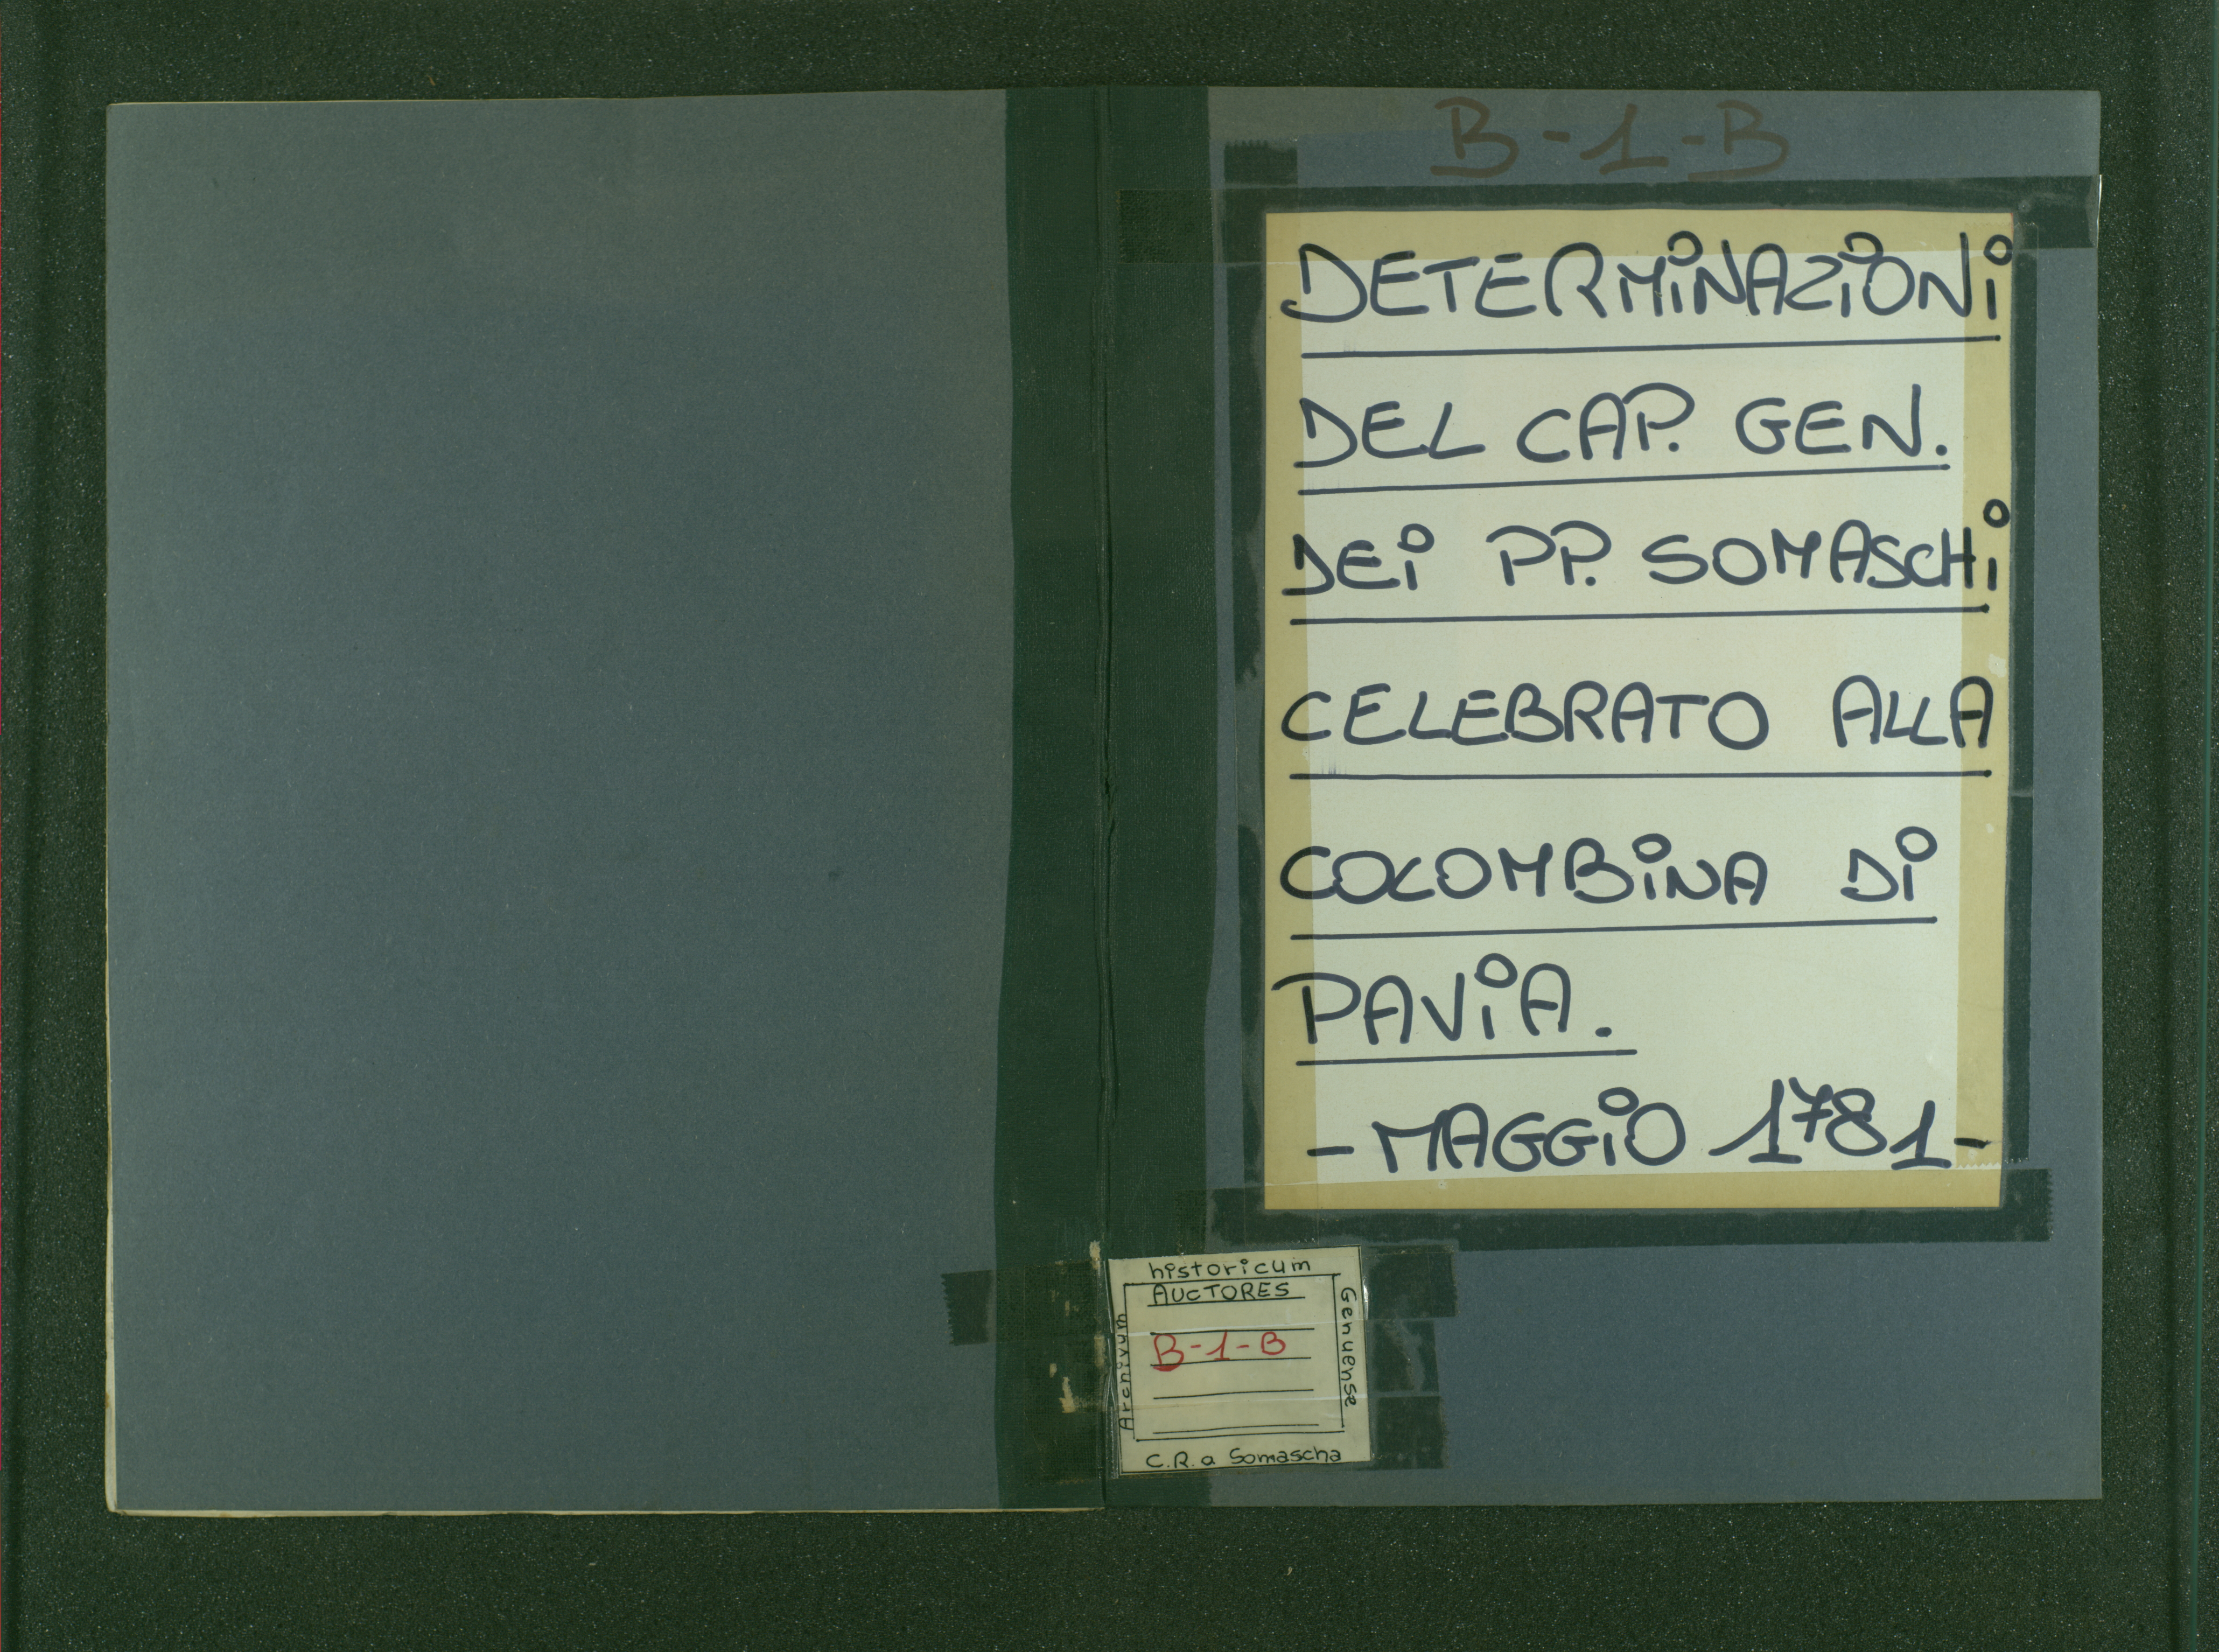 B-1-B
DETERMINAZIONI
DEL CAP. GEN.
DEI PP. SOMASCHI
CELEBRATO ALLA
COLOMBINA DI
PAVIA.
- MAGGIO 1781 -
historicum
AUCTORES
B-1-B
Archivum
Genuense
C.R. a Somascha